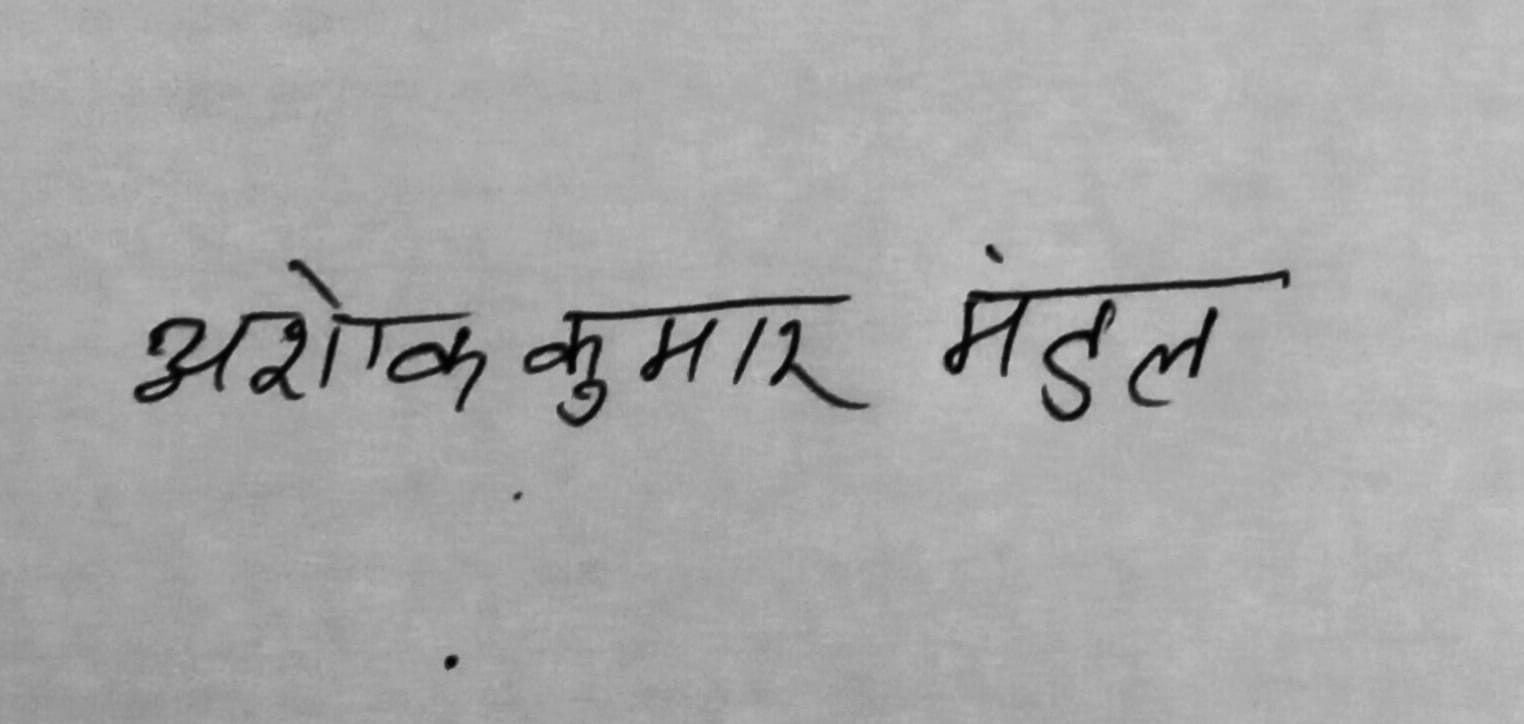 अशोक कुमार मंडल